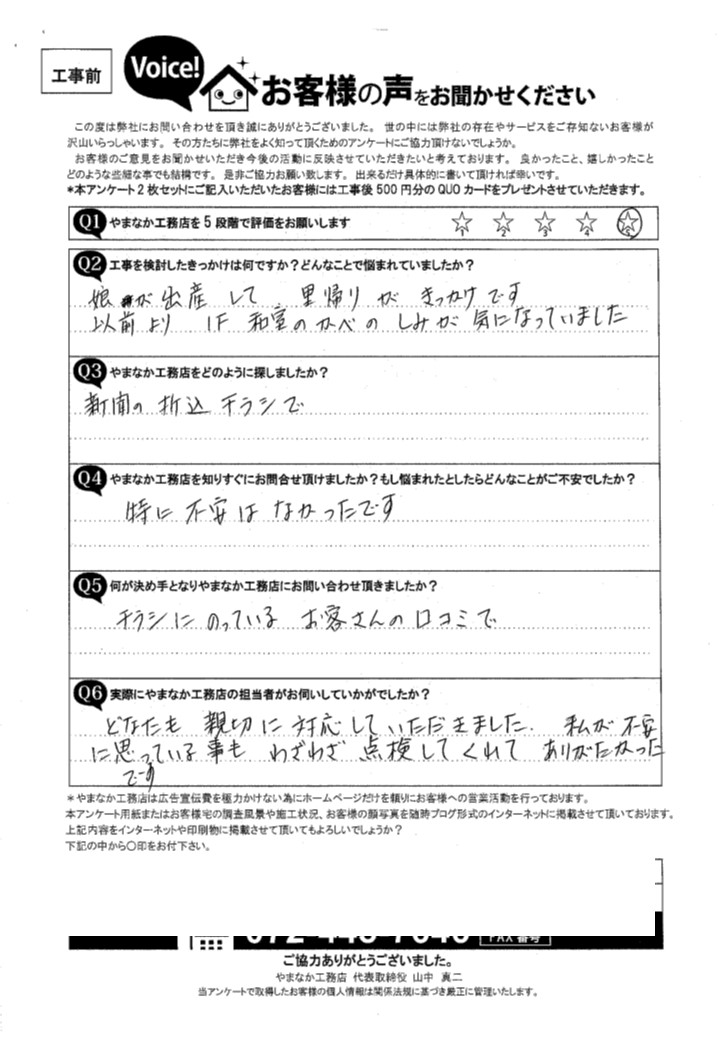 工事前
Voice!
お客様の声をお聞かせください
この度は弊社にお問い合わせを頂き誠にありがとうございました。 世の中には弊社の存在やサービスをご存知ないお客様が
沢山いらっしゃいます。 その方たちに弊社をよく知って頂くためのアンケートにご協力頂けないでしょうか。
お客様のご意見をお聞かせいただき今後の活動に反映させていただきたいと考えております。 良かったこと、嬉しかったこと
どのような些細な事でも結構です。 是非ご協力お願い致します。 出来るだけ具体的に書いて頂ければ幸いです。
*本アンケート2枚セットにご記入いただいたお客様には工事後500円分のQUOカードをプレゼントさせていただきます。
Q1 やまなか工務店を5段階で評価をお願いします
1 2 3 4 5
Q2 工事を検討したきっかけは何ですか?どんなことで悩まれていましたか?
娘が出産して 里帰りがきっかけです
以前より 1F 和室のかべのしみが気になっていました
Q3 やまなか工務店をどのように探しましたか?
新聞の折込チラシで
Q4 やまなか工務店を知りすぐにお問合せ頂けましたか?もし悩まれたとしたらどんなことがご不安でしたか?
特に不安はなかったです
Q5 何が決め手となりやまなか工務店にお問い合わせ頂きましたか?
チラシにのっている お客さんの口コミで
Q6 実際にやまなか工務店の担当者がお伺いしていかがでしたか?
どなたも 親切に対応していただきました. 私が不安
に思っている事も わざわざ点検してくれて ありがたかった
です
*やまなか工務店は広告宣伝費を極力かけない為にホームページだけを頼りにお客様への営業活動を行っております。
本アンケート用紙またはお客様宅の調査風景や施工状況、お客様の顔写真を随時ブログ形式のインターネットに掲載させて頂いております。
上記内容をインターネットや印刷物に掲載させて頂いてもよろしいでしょうか?
下記の中から〇印をお付下さい。
FAX番号
ご協力ありがとうございました。
やまなか工務店 代表取締役 山中 真二
当アンケートで取得したお客様の個人情報は関係法規に基づき厳正に管理いたします。